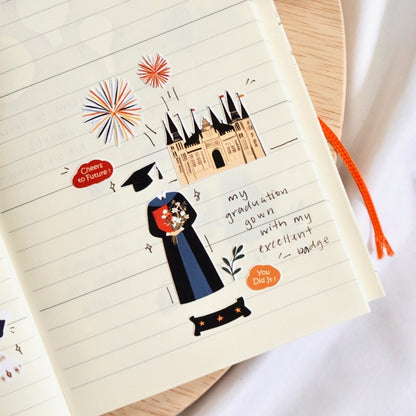 Cheers
to Future!
my
graduation
gown
with my
excellent
badge
You
Did It!